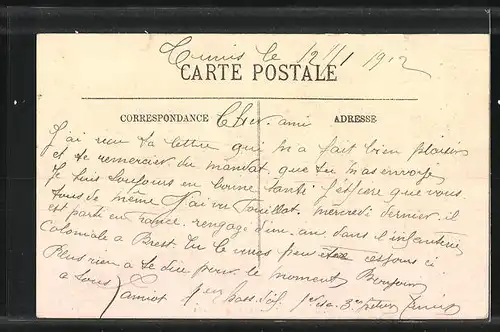 Tunis le 12/1 1912
CARTE POSTALE
CORRESPONDANCE Cher ami ADRESSE
J'ai reçu ta lettre qui m'a fait bien plaisir
et te remercier du mandat que tu m'as envoyé
Je suis toujours en bonne santé J'espère que vous
tous de même J'ai vu Fouillot mercredi dernier il
est parti en France, rengagé d'un an dans l'infanterie
Coloniale a Brest. Tu le verras peut être ces jours ci
Plus rien a te dire pour le moment Bonjour
a tous